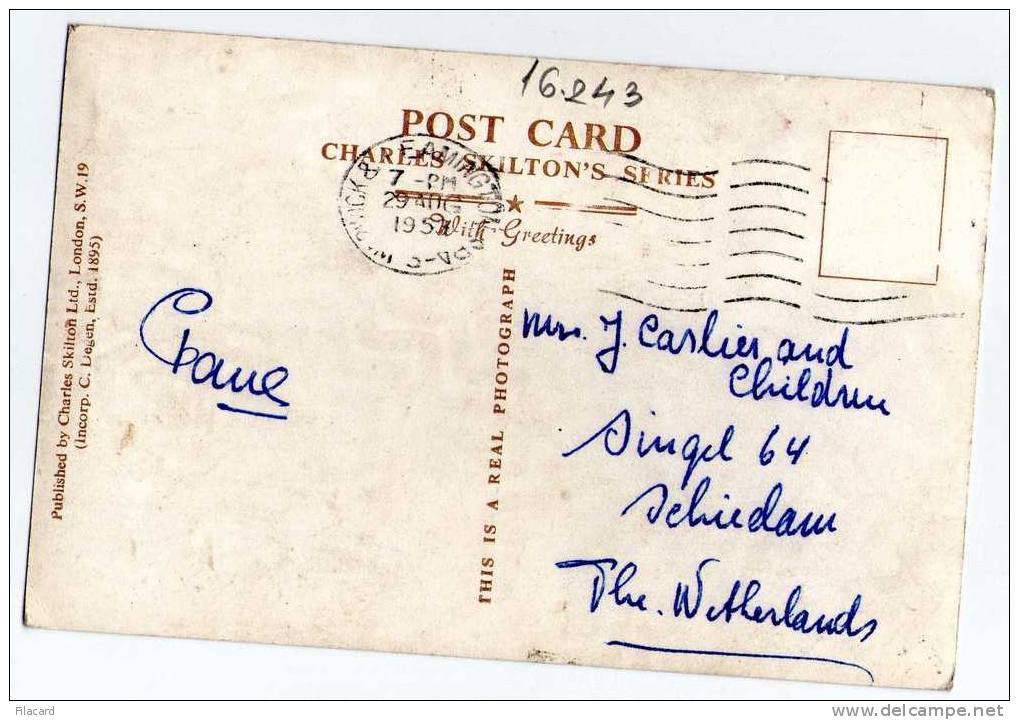 16.243
POST CARD
CHARLES SKILTON'S SERIES
With Greetings
WARWICK & LEAMINGTON SPA
7 - PM
29 AUG
195
Published by Charles Skilton Ltd., London, S.W. 19
(Incorp. C. Degen, Estd. 1895)
THIS IS A REAL PHOTOGRAPH
Mrs. J. Carlier and
Children
Singel 64
Schiedam
The Netherlands
Filacard
www.delcampe.net